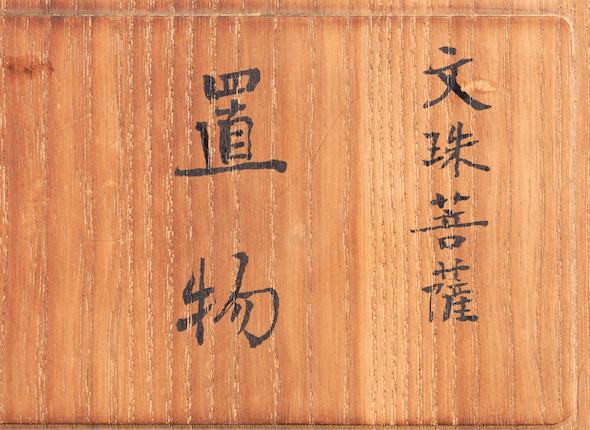 文珠菩薩
置物